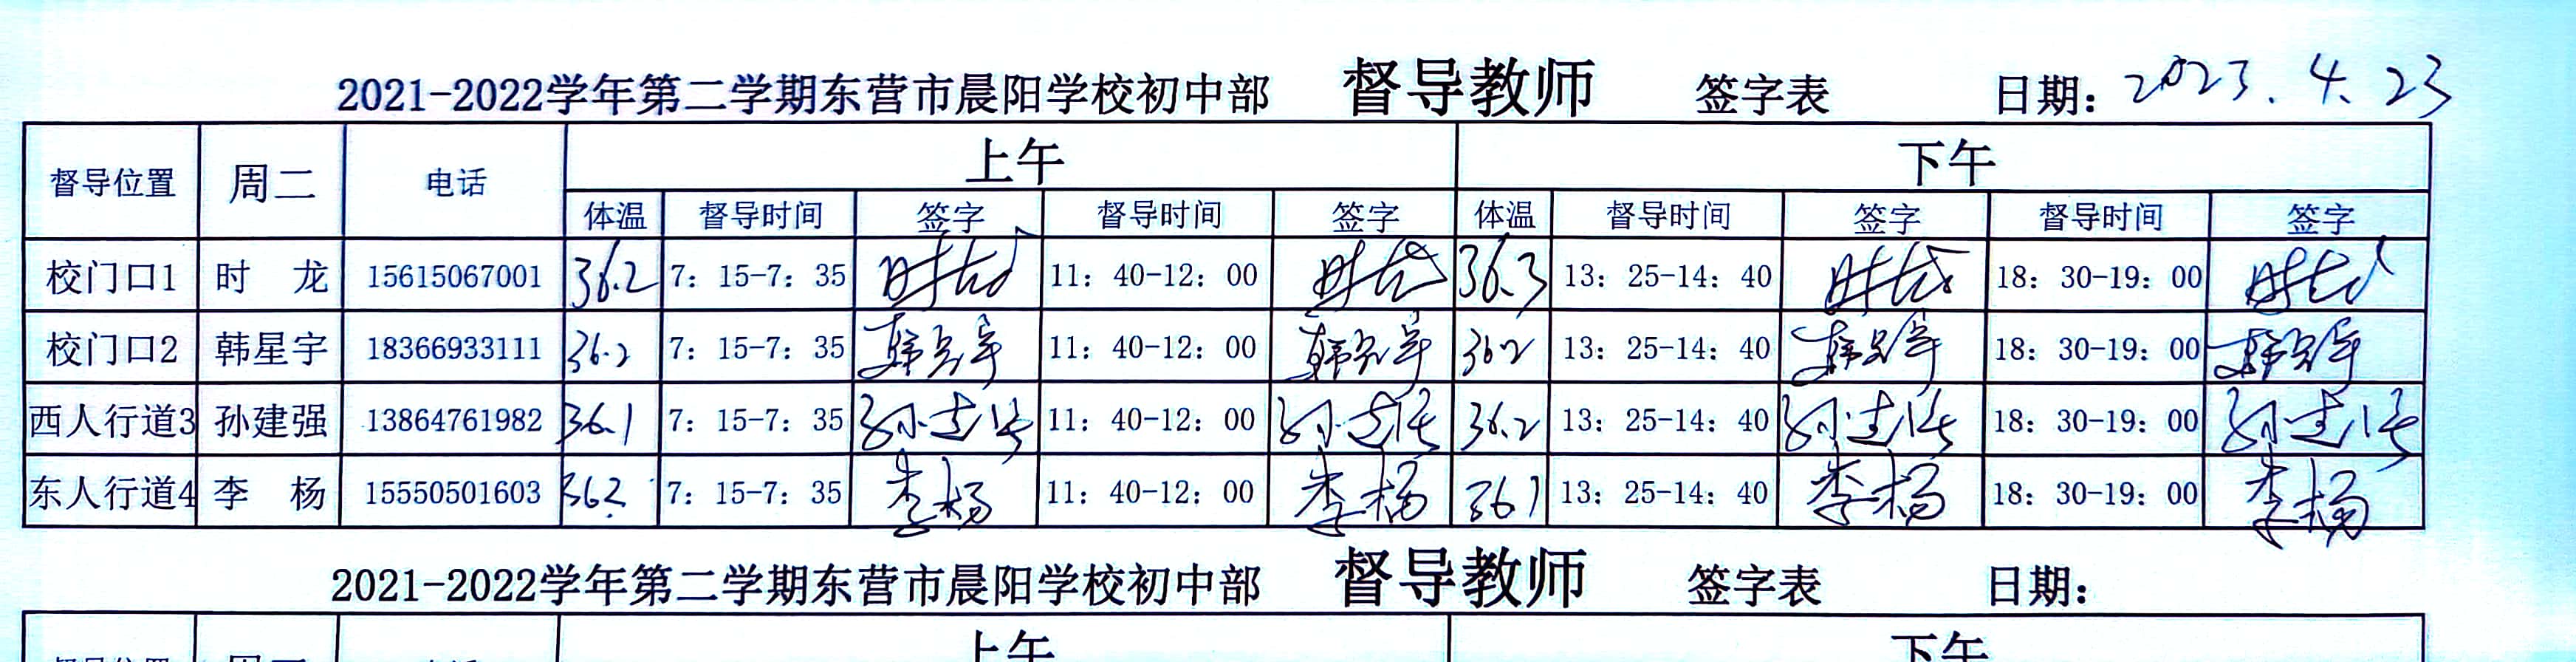 2021-2022学年第二学期东营市晨阳学校初中部 督导教师 签字表 日期：2023.4.23
督导位置 周二 电话 上午 下午
体温 督导时间 签字 督导时间 签字 体温 督导时间 签字 督导时间 签字
校门口1 时 龙 15615067001 36.2 7：15-7：35 时龙 11：40-12：00 时龙 36.3 13：25-14：40 时龙 18：30-19：00 时龙
校门口2 韩星宇 18366933111 36.2 7：15-7：35 韩星宇 11：40-12：00 韩星宇 36.2 13：25-14：40 韩星宇 18：30-19：00 韩星宇
西人行道3 孙建强 13864761982 36.1 7：15-7：35 孙建强 11：40-12：00 孙建强 36.2 13：25-14：40 孙建强 18：30-19：00 孙建强
东人行道4 李 杨 15550501603 36.2 7：15-7：35 李杨 11：40-12：00 李杨 36.1 13：25-14：40 李杨 18：30-19：00 李杨
2021-2022学年第二学期东营市晨阳学校初中部 督导教师 签字表 日期：
上午 下午